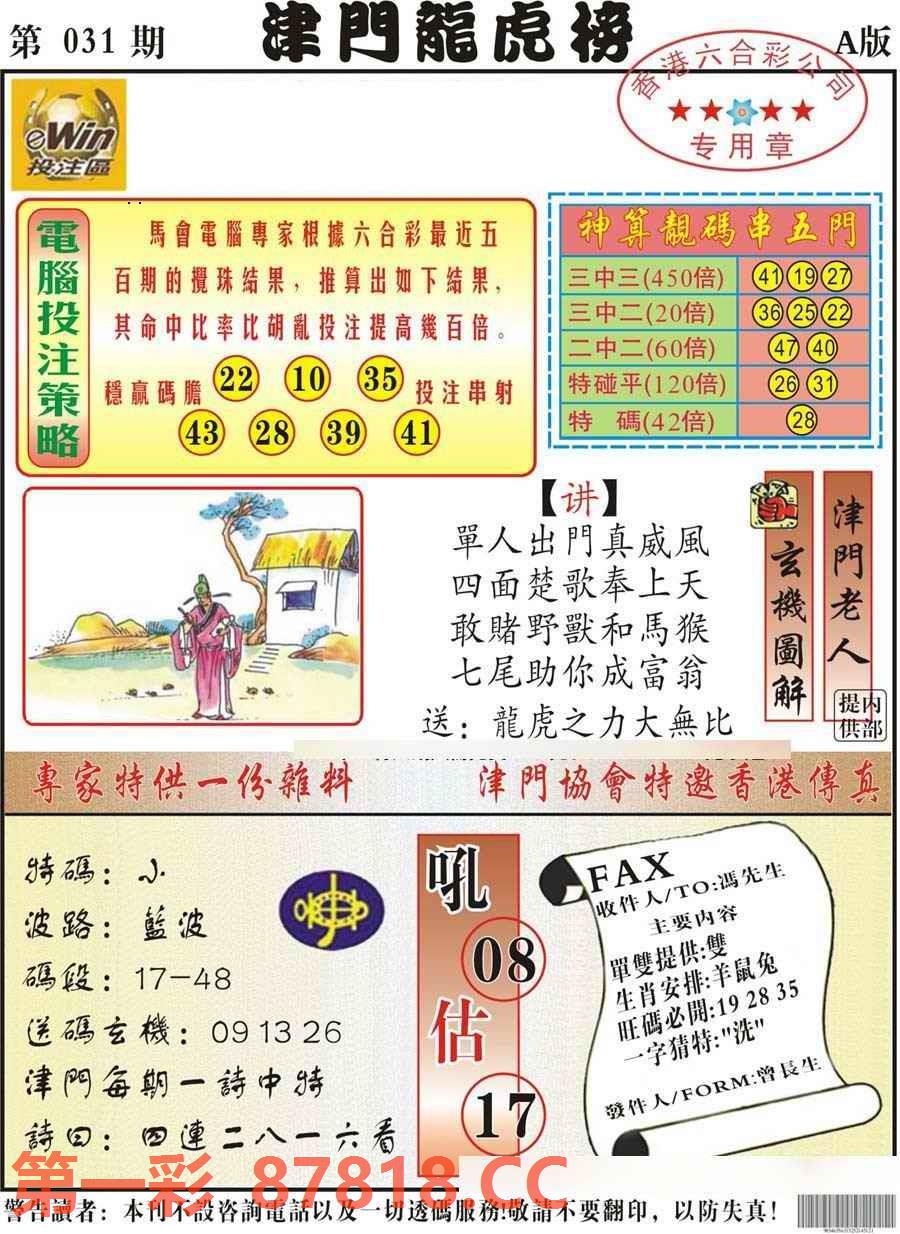 第 031 期
津門龍虎榜
A版
香港六合彩公司
专用章
eWin
投注區
電腦投注策略
馬會電腦專家根據六合彩最近五
百期的攪珠結果，推算出如下結果，
其命中比率比胡亂投注提高幾百倍。
穩贏碼膽 22 10 35 投注串射
43 28 39 41
神算靚碼串五門
三中三(450倍) 41 19 27
三中二(20倍) 36 25 22
二中二(60倍) 47 40
特碰平(120倍) 26 31
特 碼(42倍) 28
【讲】
單人出門真威風
四面楚歌奉上天
敢賭野獸和馬猴
七尾助你成富翁
送：龍虎之力大無比
玄機圖解
津門老人
内部提供
專家特供一份雜料
津門協會特邀香港傳真
特碼：小
波路：藍波
碼段：17-48
送碼玄機：09 13 26
津門每期一詩中特
詩曰：四連二八一六看
吼
08
估
17
FAX
收件人/TO:馮先生
主要内容
單雙提供:雙
生肖安排:羊鼠兔
旺碼必開:19 28 35
一字猜特:"洗"
發件人/FORM:曾長生
第一彩 87818.CC
警告讀者：本刊不設咨詢電話以及一切透碼服務!敬請不要翻印，以防失真！